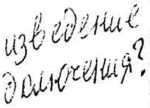 изведение
долючения?